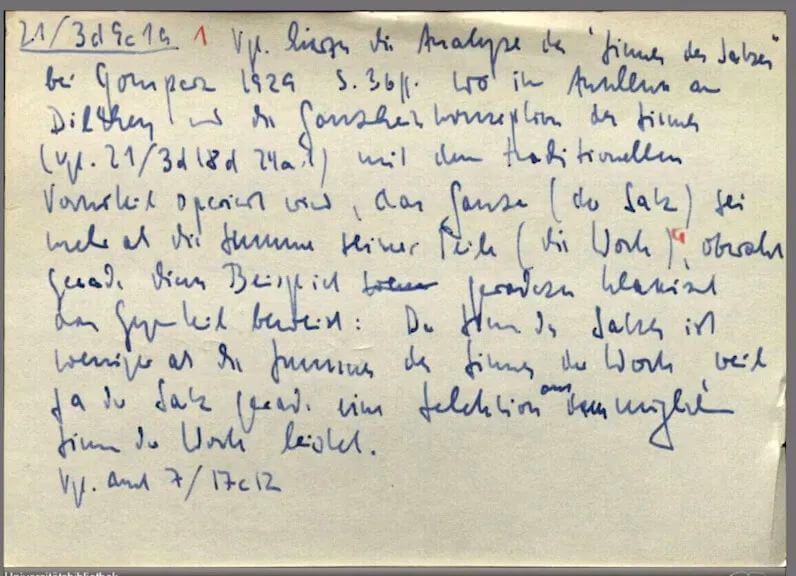 21/3d9c1a 1 Vgl. hierzu die Analyse des "Sinnes des Satzes"
bei Gomperz 1929 S. 36ff. wo im Anschluss an
Dilthey und die Ganzheitskonzeption des Sinnes
(vgl. 21/3d18d24a1) mit dem traditionellen
Vorurteil operiert wird, das Ganze (der Satz) sei
mehr als die Summe seiner Teile (die Worte), obwohl
gerade dieses Beispiel geradezu klassisch
das Gegenteil beweist: Der Sinn des Satzes ist
weniger als die Summe des Sinnes der Worte, weil
ja der Satz gerade eine Selektion aus dem möglichen
Sinn der Worte leistet.
Vgl. auch 7/17c12